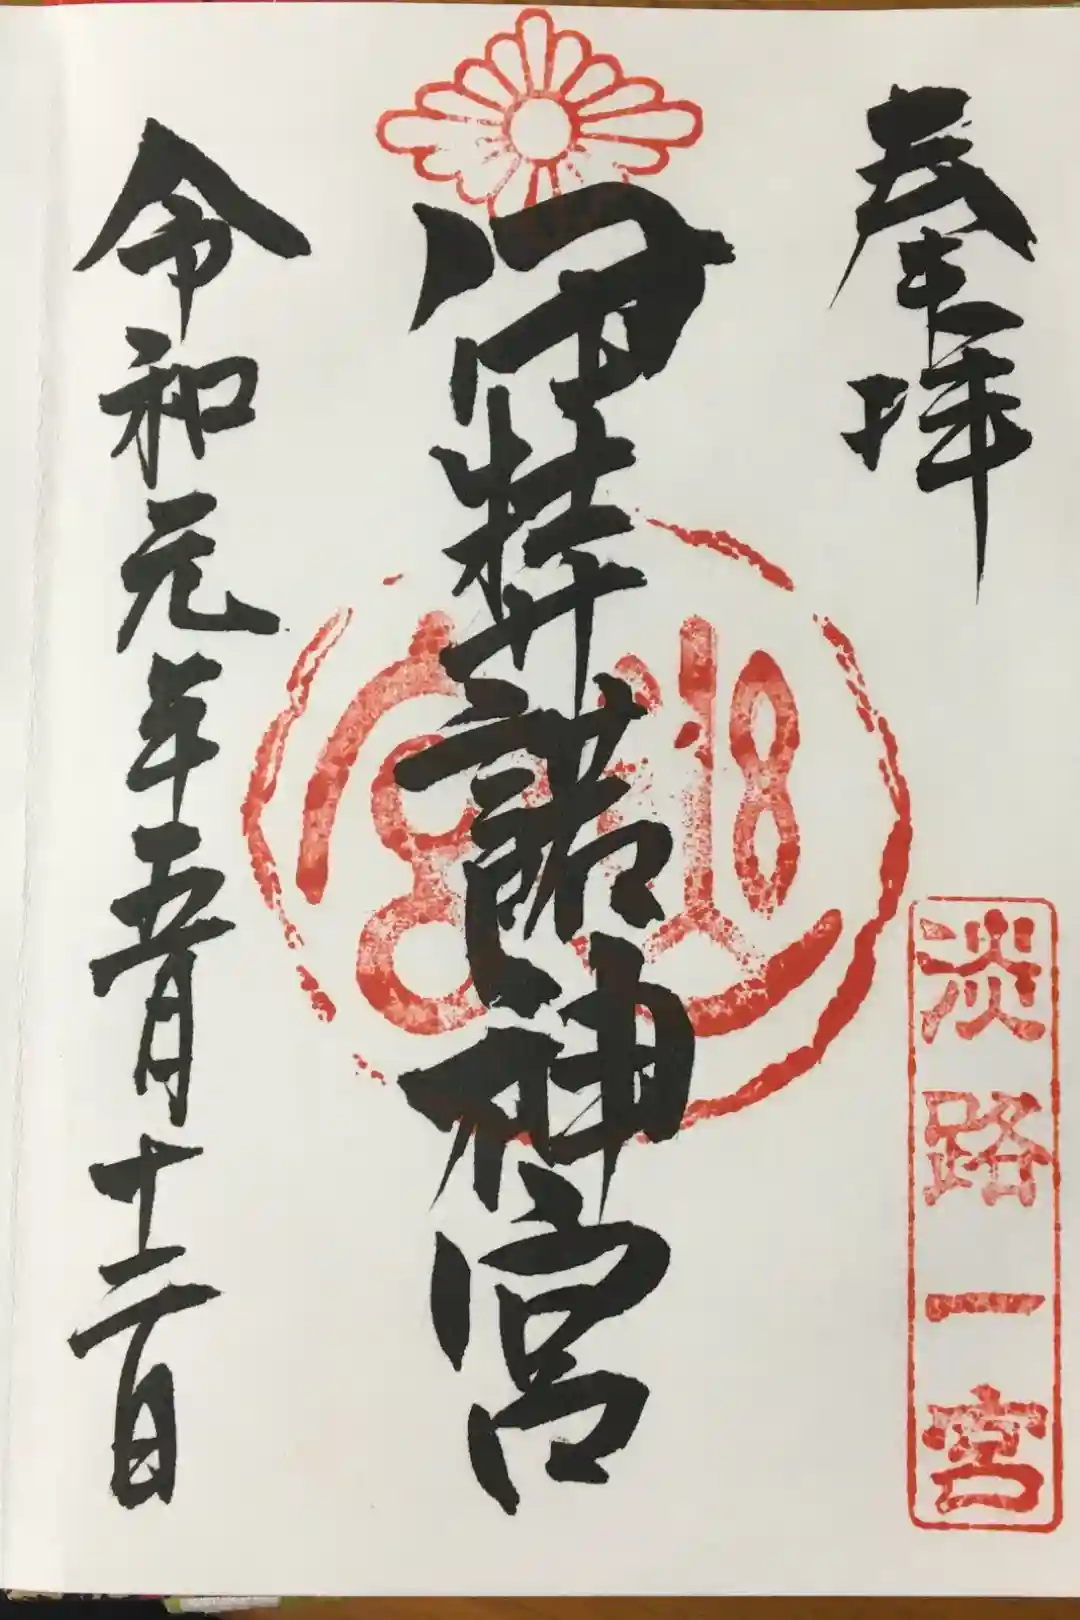 奉拝
淡路一宮
伊弉諾神宮
幽宮
令和元年五月十二日